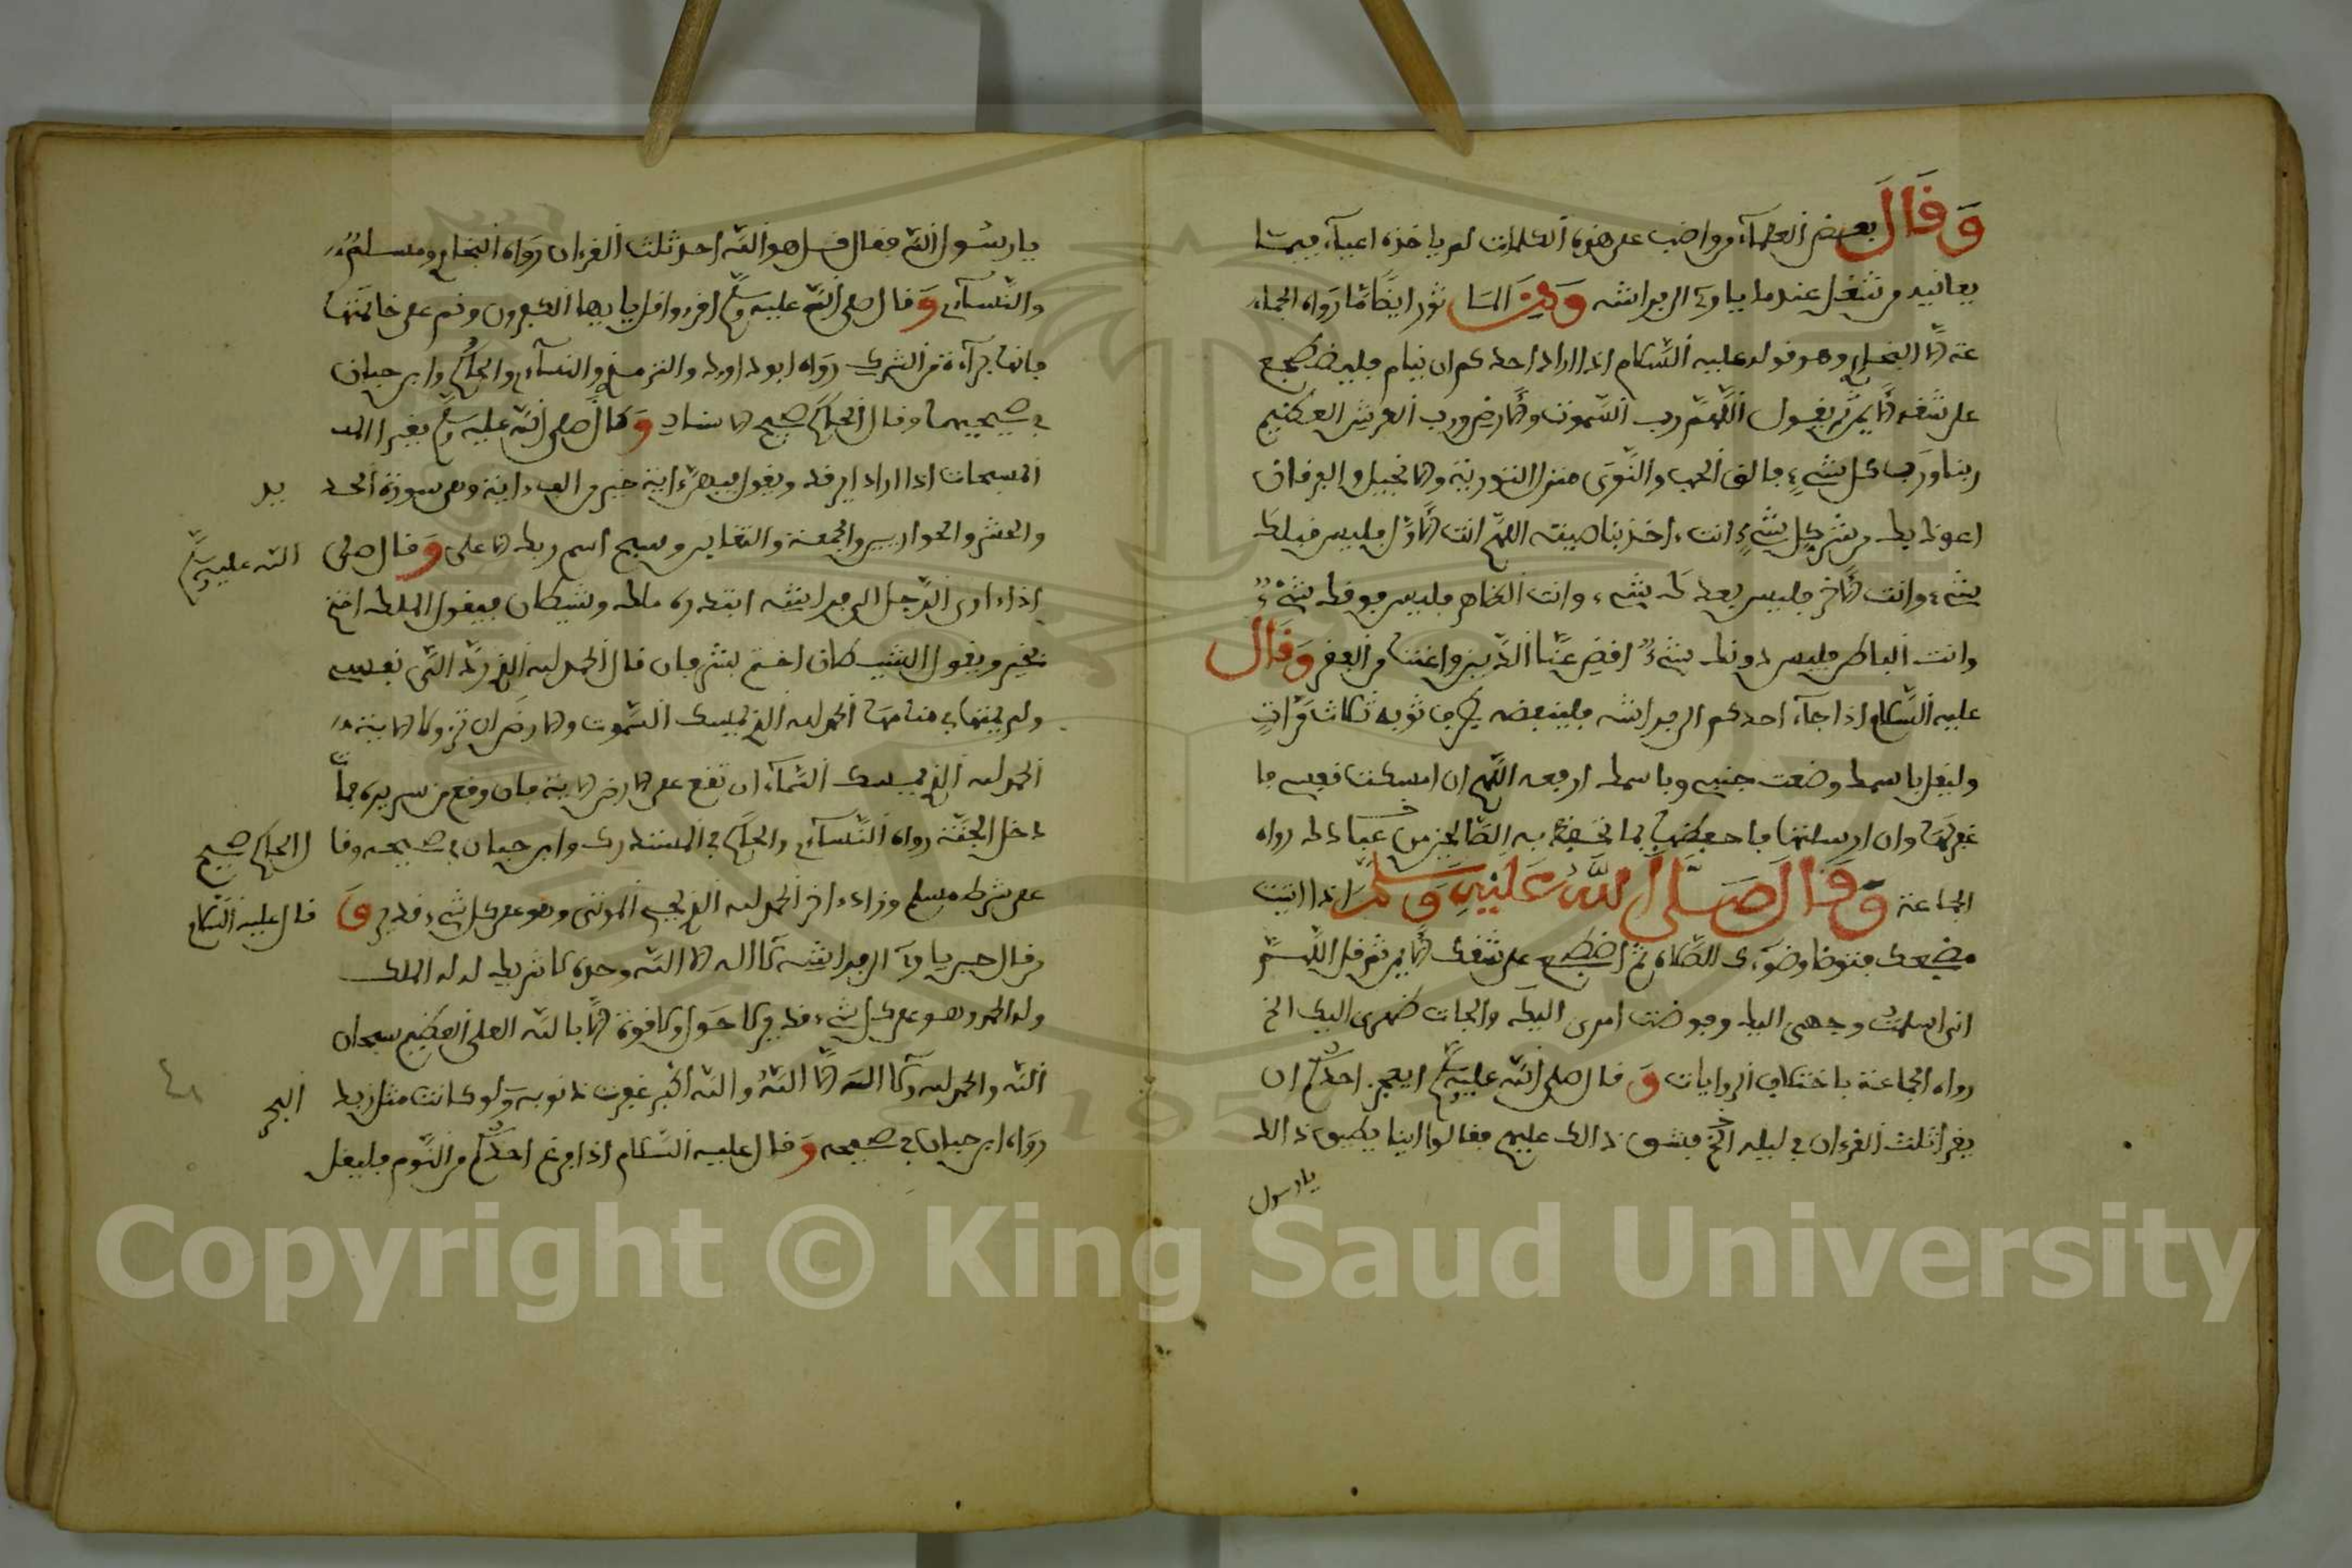 وَقَالَ بعض العلمآء من واضب على هذه الكلمات لم ياخذه اعيآء فيما
يعانيه من شغل عندما ياوي الى فراشه وَمِنَ الماثور ايضًا ما رَواه الجماعة
عنه الا البخاري وهو قوله عليه السّلام اذا اراد احدكم ان ينام فليضطجع
على شقه الايمن ثم يقول اللهمّ رب السّموت والارض ورب العرش العظيم
ربنا ورَب كل شيء فالق الحب والنّوَى منزل التورية والانجيل والفرقان
اعوذ بك من شر كل شيء انت ءاخذ بناصيته اللهم انت الاوّل فليس قبلك
شيء وانت الاخر فليس بعدك شيء وانت الظاهر فليس فوقك شيء
وانت الباطن فليس دونك شيء اقض عنّا الدّين واغننا من الفقر وَقَالَ
عليه السّلام اذا جآء احدكم الى فراشه فلينفضه بطرف ثوبه ثلاث مَرّاتٍ
وليقل باسمك وضعت جنبي وباسمك ارفعه اللهم ان امسكت نفسي فا
غفر لها وان ارسلتها فاحفظها بما تحفظ به الصّالحين من عبادك رواه
الجماعة وَقَالَ صَلَّى اللهُ عَلَيْهِ وَسَلَّمَ اذا اتيت
مضجعك فتوضا وضوءك للصّلاة ثم اضطجع على شقك الايمن ثم قل اللهمّ
انى اسلمت وجهى اليك وفوضت امرى اليك والجات ظهرى اليك الخ
رواه الجماعة باختلاف الروايات وَقال صلى الله عليه وسلم ايعجز احدكم ان
يقرا ثلث القرءان في ليلة الخ فشق ذالك عليهم فقالوا اينا يطيق ذالك
يارسول
يا رسُول الله فقال قل هو الله احد ثلث القرءان رَوَاه البخاري ومسلم
والنّسآءي وَقال صلى الله عليه وسلم اقرءوا قل يا ايها الكفرون ونم على خاتمتها
فانها برآءة من الشرك رَوَاه ابو داود والترمذي والنسآءي والحاكم وابن حبان
في صحيحيهما وقال الحاكم صحيح الاسناد وَكان صلى الله عليه وسلم يقرا
المسبحات اذا اراد ان يرقد ويقول فيهن ءاية خير من الف ءاية وهي سورة الحديد
والحشر والحواريين والجمعة والتغابن وسبح اسم ربك الاعلى وَقال صلى الله عليه وسلم
اذا ءاوى الرّجل الى فراشه ابتدره ملك وشيطان فيقول الملك اختم
بخير ويقول الشيطان اختم بشر فان قال الحمد لله الذي ردّ الىّ نفسي
ولم يمتها في منامها الحمد لله الذي يمسك السّموت والارض ان تزولا الاية
الحمد لله الذي يمسك السّمآء ان تقع على الارض الاية فان وقع من سريره فمات
دخل الجنّة رواه النّسآءي والحاكم في المستدرك وابن حبان في صحيحه وقال الحاكم صحيح
على شرط مسلم وزاد ءاخر الحمد لله الذي يحيى الموتى وهو على كل شيء قدير وَقال عليه السّلام
من قال حين ياوي الى فراشه لا اله الا الله وحده لا شريك له له الملك
وله الحمد وهو على كل شيء قدير ولا حول ولا قوة الا بالله العلى العظيم سبحان
الله والحمد لله ولا اله الا الله والله اكبر غفرت ذنوبه ولو كانت مثل زبد البحر
رَوَاه ابن حبان في صحيحه وَقال عليه السّلام اذا فرغ احدكم من النّوم فليقل
Copyright © King Saud University
1957